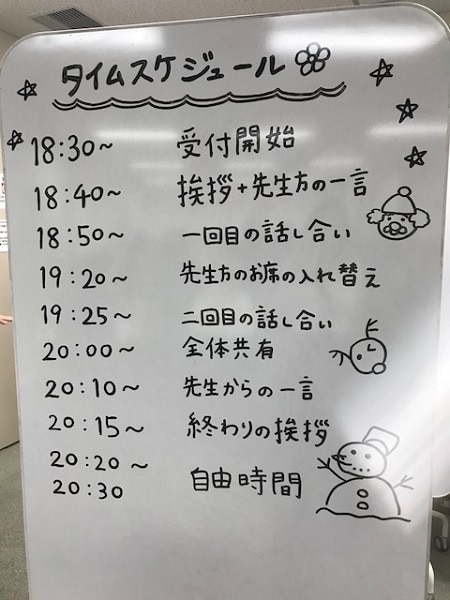 タイムスケジュール
18:30～ 受付開始
18:40～ 挨拶+先生方の一言
18:50～ 一回目の話し合い
19:20～ 先生方のお席の入れ替え
19:25～ 二回目の話し合い
20:00～ 全体共有
20:10～ 先生からの一言
20:15～ 終わりの挨拶
20:20～
20:30 自由時間